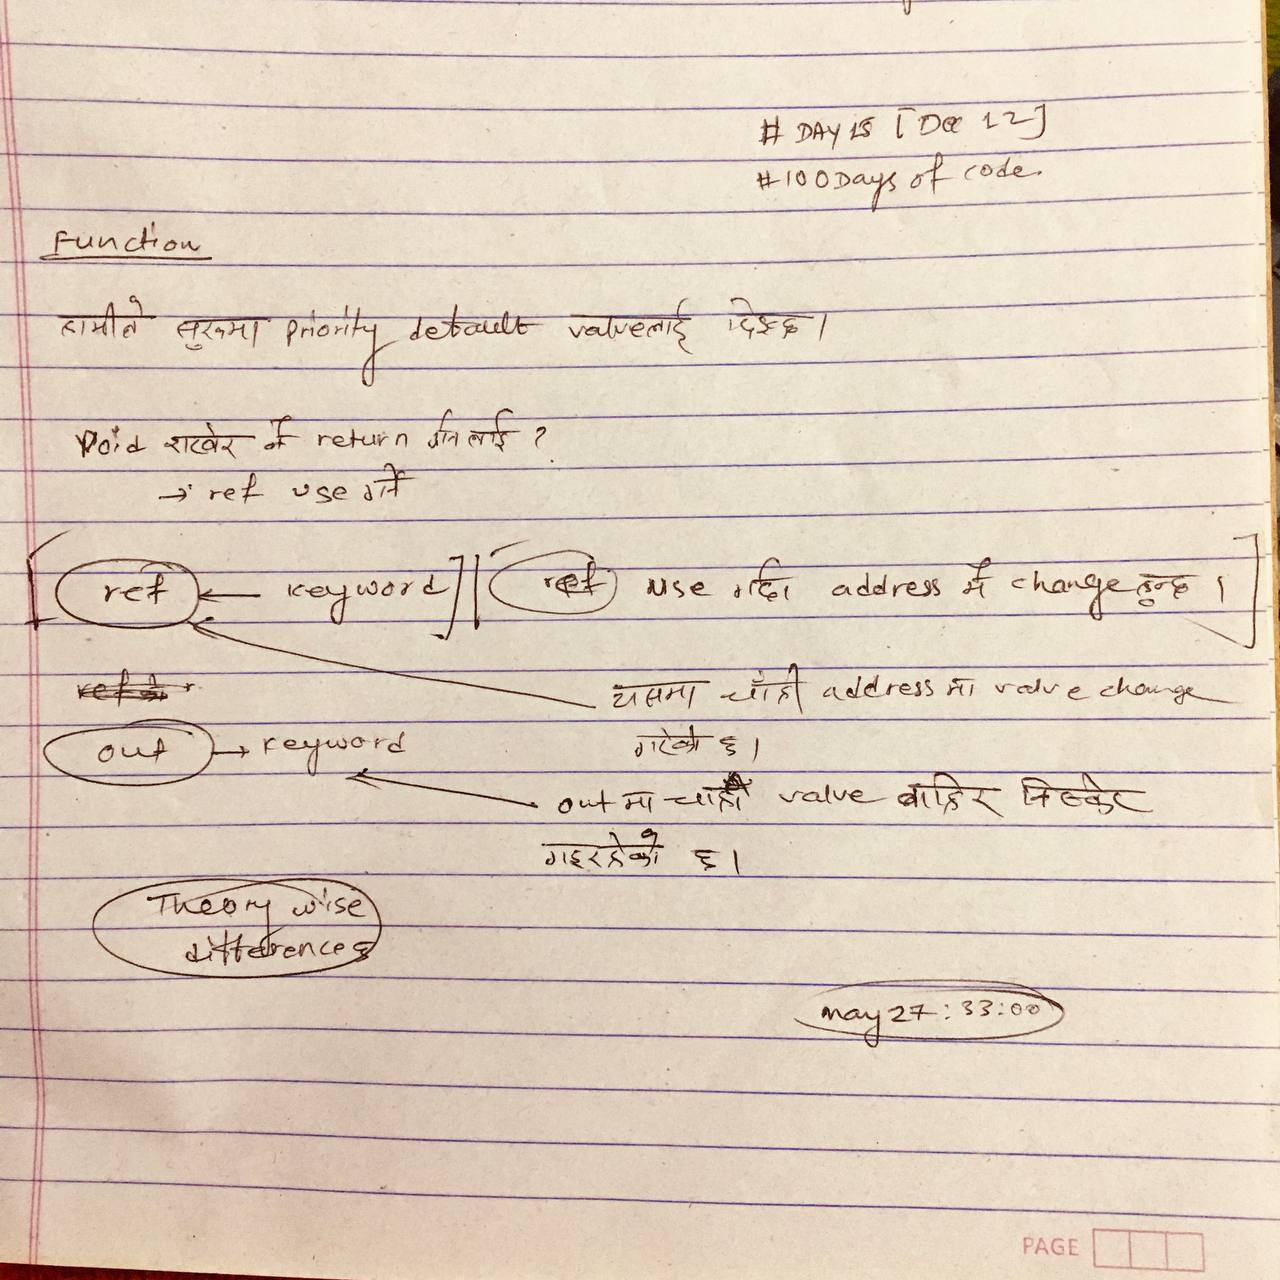 # DAY 15 [Dec 12]
#100Days of code.
Function
हामीले सुरुमा priority default valueलाई दिन्छ।
Void राखेर नै return गर्नलाई ?
→ ref use गर्ने
[ref ← keyword] | [ref use गर्दा address नै change हुन्छ।]
यसमा चाँही address मा value change
गरेको छ।
out → keyword
out मा चाही value बाहिर निस्केर
गइरहेको छ।
Theory wise
differences
may 27 : 33:00
PAGE